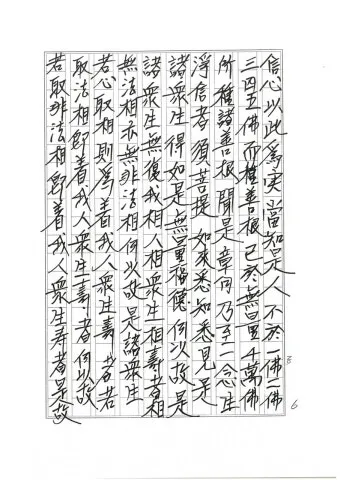 信心以此為实當知是人不於一佛二佛
三四五佛而種善根已於無量千萬佛
所種諸善根聞是章句乃至一念生
淨信者須菩提如来悉知悉見是
諸衆生得如是無量福德何以故是
諸衆生無復我相人相衆生相壽者相
無法相亦無非法相何以故是諸衆生
若心取相則為着我人衆生壽者若
取法相即着我人衆生壽者何以故
若取非法相即着我人衆生寿者是故
6